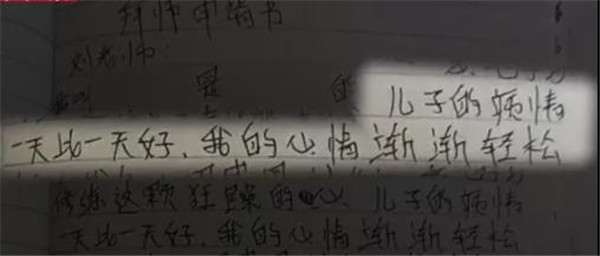 拜师申请书
刘老师:
是 的 儿子的病情
一天比一天好,我的心情渐渐轻松
修练这颗狂躁的心 儿子的病情
一天比一天好,我的心情渐渐轻松